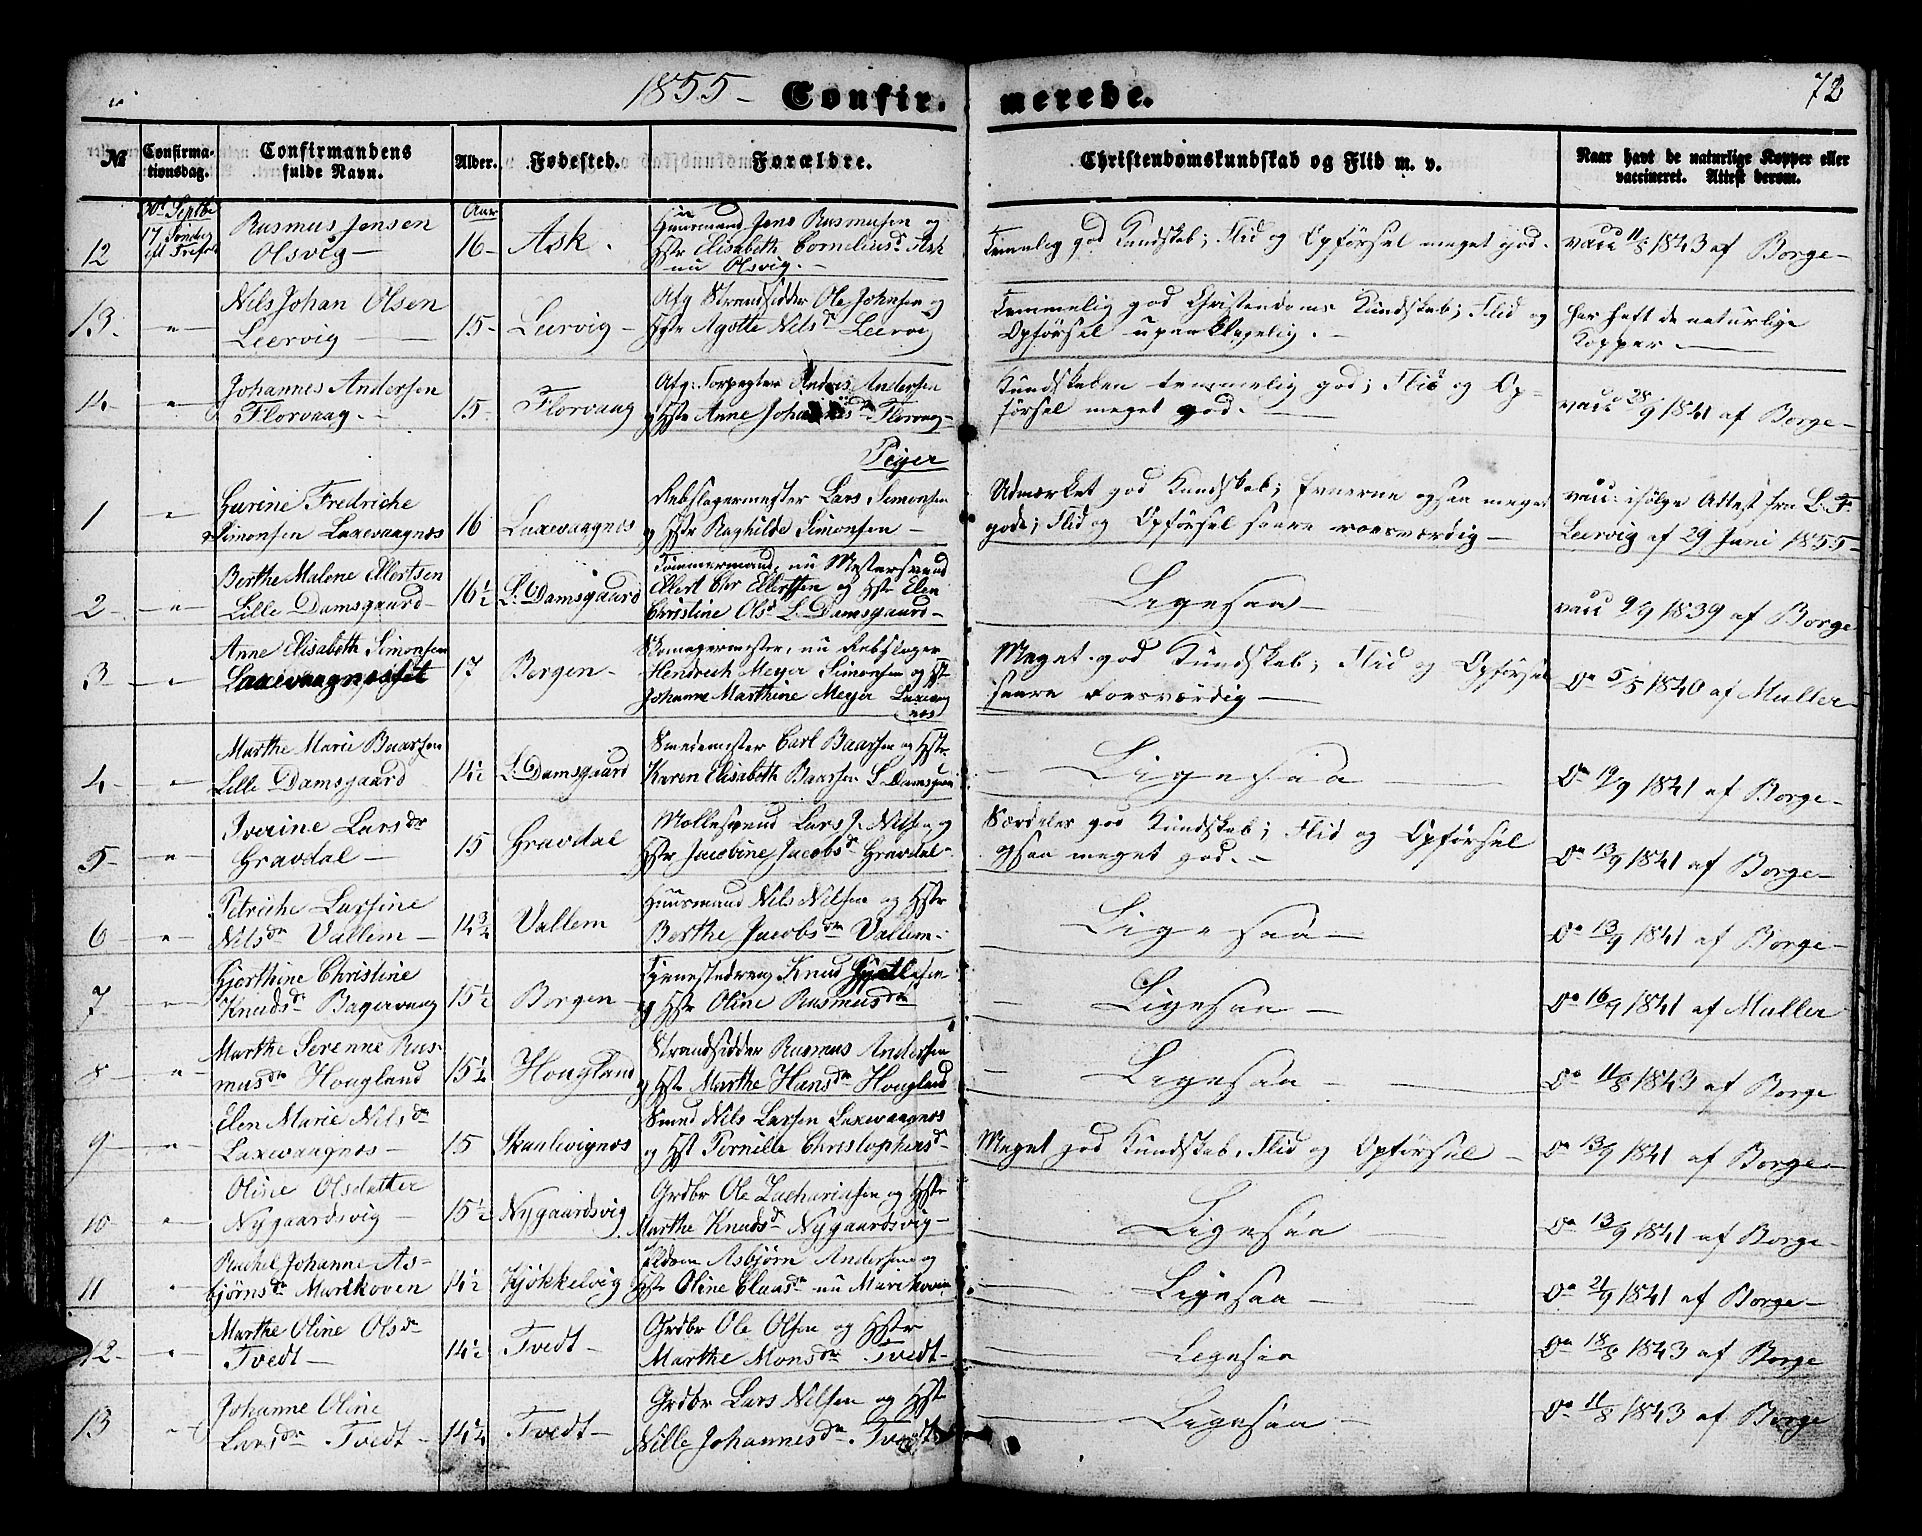 1855 - Confir. merede. 72
No
Confirma-
tionsdag.
Confirmandens
fulde Navn.
Alder.
Fødested.
Forældre.
Christendomskundskab og Flid m. v.
Naar havt de naturlige Kopper eller
vaccineret. Attest derom.
30te Septbr
17 Søndag
eft Trefol
Aar
12 Rasmus Jensen
Olsvig - 16- Ask. Huusmand Jens Rasmusen og
Hstr Elisabeth Cornelius dr Ask
nu Olsvig. -
Temmelig god Kundskab; Flid og Opførsel meget god. vacc 11/8 1843 af Borge -
13. " Nils Johan Olsen
Leervig - 15- Leervig - Afg Strandsidder Ole Johnsen og
Hstr Agotte Nils dr Leervig
Temmelig god Christendoms Kundskab; Flid og
Opførsel upaaklagelig. - har haft de naturlige
Kopper. -
14- " Johannes Andersen
Florvaag. - 15- Florvaag Afg. Torpegter Anders Andersen
og Hstr Anne Johannes dr Florvaag -
Kundskaben temmelig god; Flid og Op-
førsel meget god. - vacc 28/9 1841 af Borge -
Piger
1 " Gurine Fredriche
Simonsen Laxevaagnæs 16 Laxevaagnæs Rebslagermester Lars Simonsen
og Hstr Raghilde Simonsen -
Udmærket god Kundskab; Evnerne ogsaa meget
gode; Flid og Opførsel saare roesværdig - vacc: ifølge Attest fra L. F.
Leervig af 29 Juni 1855 -
2 - " Berthe Malene Ellertsen
Lille Damsgaard - 16½ L. Damsgaard Tømmermand, nu Mestersvend
Ellert Chr Ellertsen og Hstr Elen
Christine Ols dr L. Damsgaard -
Ligesaa - vacc 9/9 1839 af Borge
3- " Anne Elisabeth Simonsen
Laxevaagnæsset 17 Bergen - Skomagermester, nu Rebslager
Hendrich Meyer Simonsen og Hstr
Johanne Marthine Meyer Laxevaag
næs
Meget god Kundskab; Flid og Opførsel
saare roesværdig - Do 5/5 1840 af Muller -
4- " Marthe Marie Baarsen
Lille Damsgaard 14½ L. Damsgaard Smedemester Carl Baarsen og Hstr
Karen Elisabeth Baarsen L. Damsgaard
- Ligesaa - Do 19/9 1841 af Borge -
5- " Iverine Lars dr
Gravdal - 15 Gravdal Møllesvend Lars J. Nilsen og
Hstr Jacobine Jacobs dr Gravdal -
Særdeles god Kundskab; Flid og Opførsel
ogsaa meget god. - Do 13/9 1841 af Borge -
6 - " Petriche Larsine
Nils dr Vallem - 14¾ Vallem Huusmand Nils Nilsen og Hstr
Berthe Jacobs dr Vallem -
Ligesaa - Do 13/9 1841 af Borge -
7 " Hjorthine Christine
Knuds dr Bagervaag 15½ Bergen - Tjenestedreng Knud Hjertlesen
og Hstr Oline Rasmus dr
- Ligesaa - Do 16/9 1841 af Muller
8 - " Marthe Serenne Ras-
mus dr Hougland 15½ Hougland Strandsidder Rasmus Andersen
og Hstr Marthe Hans dr Hougland
- Ligesaa - Do 11/8 1843 af Borge
9 - " Elen Marie Nils dr
Laxevaagnæs - 15 Skaalevignæs Smed Nils Larsen Laxevaagnæs
og Hst Pernille Christophers dr
Meget god Kundskab, Flid og Opførsel - Do 13/9 1841 af Borge -
10 " Oline Olsdatter
Nygaardsvig - 15½ Nygaardsvig Grdbr Ole Zachariasen og Hstr
Marthe Knuds dr Nygaardsvig -
- Ligesaa - Do 13/9 1841 af Borge -
11 " Rachel Johanne As-
bjørns dr Marikoven 14½ Kjøkkelvig Asbjørn Andersen og
Hstr Oline Claas dr nu Marikoven
- Ligesaa - Do 21/9 1841 af Borge -
12 - " Marthe Oline Ols dr
Tvedt - 14½ Tvedt - Grdbr Ole Olsen og Hstr
Marthe Mons dr Tvedt -
- Ligesaa Do 18/8 1843 af Borge
13 " Johanne Oline
Lars dr Tvedt - 14¼ Tvedt - Grdbr Lars Nilsen og Hstr
Nille Johannes dr Tvedt
- Ligesaa - Do 11/8 1843 af Borge